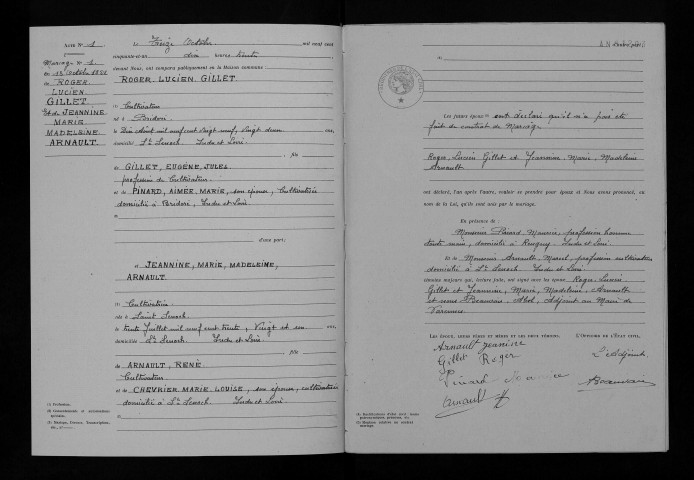 ACTE N° 1
Mariage N° 1
ROGER
LUCIEN
GILLET
et de JEANNINE
MARIE
MADELEINE
ARNAULT
Le Treize Octobre mil neuf cent
cinquante-et-un dix heures trente
devant Nous, ont comparu publiquement en la Maison commune :
ROGER LUCIEN GILLET
(1) Cultivateur
né à
mil neuf cent vingt neuf, vingt deux ans,
domicilié St Senoch. Indre et Loire
, fils
de GILLET, EUGÈNE, JULES
profession de Cultivateur
et de PINARD, AIMÉE, MARIE, son épouse, Cultivatrice
domiciliés à Indre et Loire
d'une part;
et JEANNINE, MARIE, MADELEINE,
ARNAULT
(1) Cultivatrice
née à Saint Senoch
le trente Juillet mil neuf cent trente, Vingt et un ans,
domiciliée St Senoch. Indre et Loire
fille
de ARNAULT, RENÉ
Cultivateur
et de CHEVRIER MARIE LOUISE, son épouse, cultivatrice
domiciliés à St Senoch Indre et Loire
(1) Profession.
Les futurs époux ont déclaré qu'il n'a pas été
fait de contrat de Mariage
Roger Lucien Gillet et Jeannine Marie Madeleine
Arnault
ont déclaré, l'un après l'autre, vouloir se prendre pour époux et Nous avons prononcé, au
nom de la Loi, qu'ils sont unis par le mariage.
En présence de :
Monsieur Pinard Maurice, profession
domicilié à Indre et Loire
Et de Monsieur Arnault Marcel, profession cultivateur
domicilié à St Senoch Indre et Loire
témoins majeurs qui, lecture faite, ont signé avec les époux Roger Lucien
Gillet et Jeannine, Marie, Madeleine, Arnault
et nous Beauvais Abel, Adjoint au Maire de
Varennes
LES ÉPOUX, LEURS PÈRES ET MÈRES ET LES DEUX TÉMOINS, L'OFFICIER DE L'ÉTAT CIVIL,
Arnault Jeannine
Gillet Roger L'adjoint
Pinard Maurice
Beauvais
Arnault